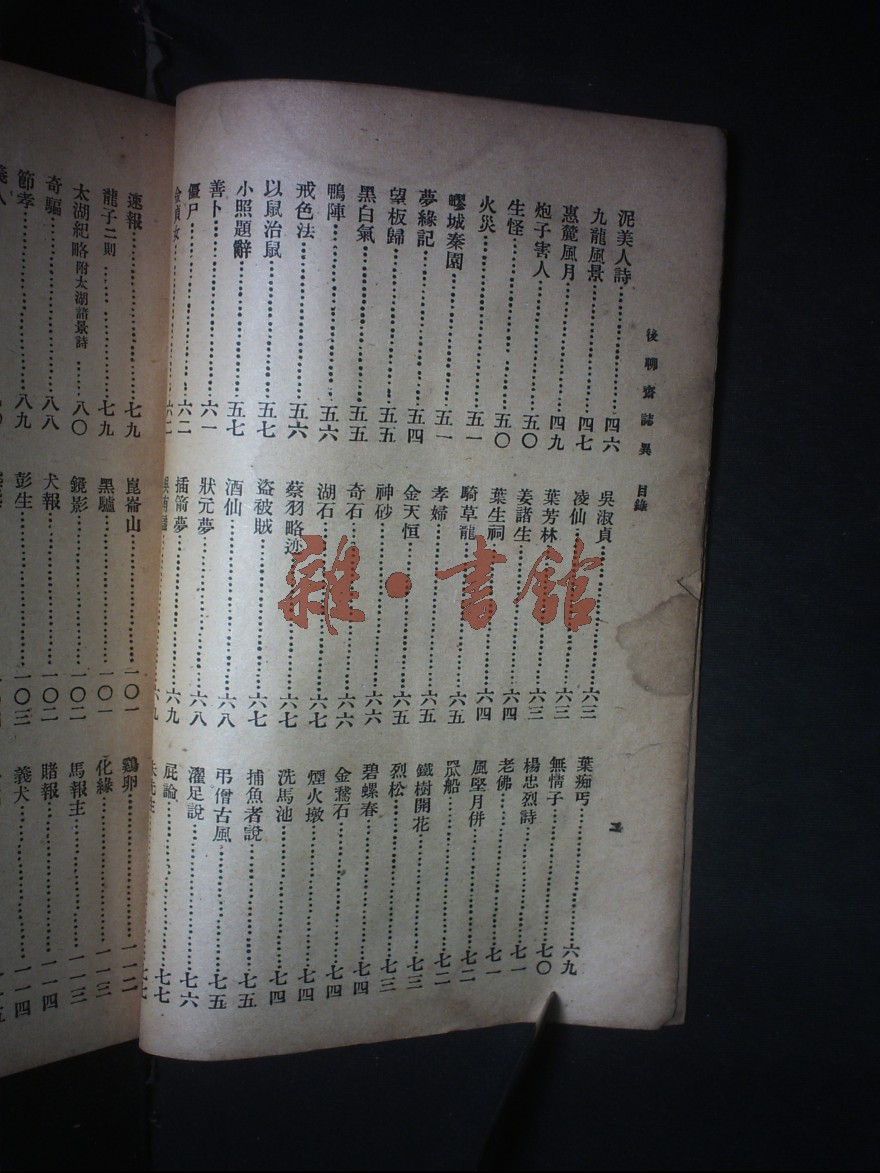 後聊齋誌異 目錄
泥美人詩……四六
九龍風景……四七
惠麓風月……四九
炮子害人……五〇
生怪……五〇
火災……五一
秦園……五一
夢緣記……五四
望板歸……五五
黑白氣……五五
鴨陣……五六
戒色法……五六
以鼠治鼠……五七
小照題辭……五七
善卜……六一
僵尸……六二
六二
吳淑貞……六三
凌仙……六三
葉芳林……六三
姜諸生……六四
葉生祠……六四
騎草龍……六五
孝婦……六五
金天恒……六五
神砂……六六
奇石……六六
湖石……六七
蔡羽略迹……六七
盜被賊……六七
酒仙……六八
狀元夢……六八
插箭夢……六九
六九
葉痴丐……六九
無情子……七〇
楊忠烈詩……七一
老佛……七一
風堅月併……七二
瓜船……七二
鐵樹開花……七三
烈松……七三
碧螺春……七四
金鶖石……七四
煙火墩……七四
洗馬池……七四
捕魚者說……七五
弔僧古風……七五
濯足說……七六
屁論……七七
七七
速報……七九
龍子二則……七九
太湖紀略附太湖諸景詩……八〇
奇騙……八八
節孝……八九
崑崙山……一〇一
黑驢……一〇一
鏡影……一〇二
犬報……一〇二
彭生……一〇三
鷄卵……一一二
化緣……一一三
馬報主……一一三
賭報……一一四
義犬……一一四
雜·書館